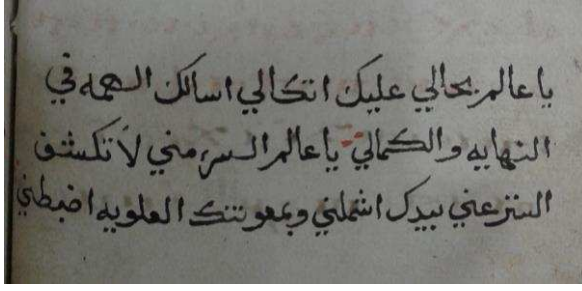 يا عالم بحالي عليك اتكالي اسالك الصحه في
النهايه والكمالي يا عالم السر مني لا تكشف
الستر عني بيدك اشملني وبمعونتك العلويه اضبطني